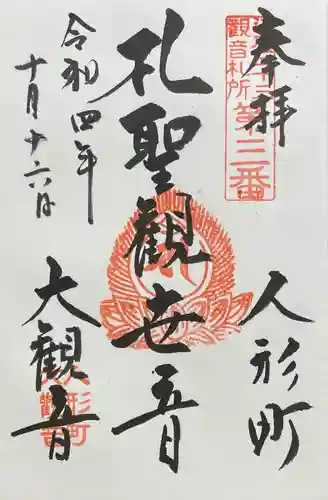 奉拝
人形町
札聖観世音
大観音
令和四年
十月十六日
観音札所
第三番